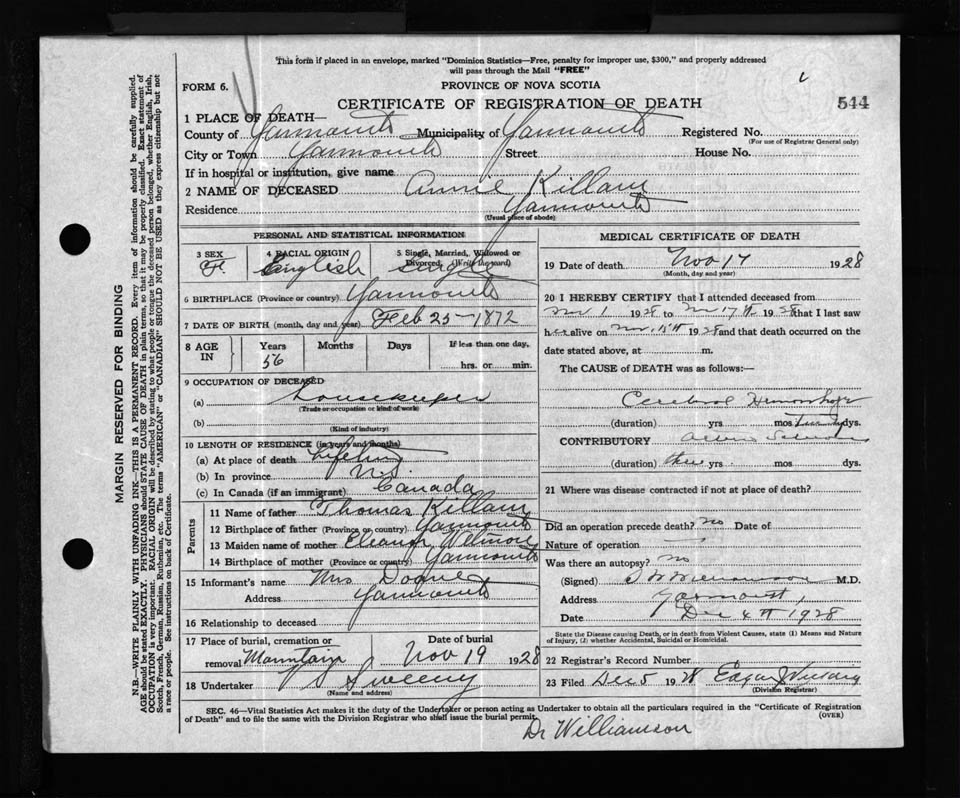 This form if placed in an envelope, marked "Dominion Statistics—Free, penalty for improper use, $300," and properly addressed
will pass through the Mail "FREE"
FORM 6. PROVINCE OF NOVA SCOTIA
CERTIFICATE OF REGISTRATION OF DEATH 544
1 PLACE OF DEATH—
County of Yarmouth Municipality of Yarmouth Registered No.
(For use of Registrar General only)
City or Town Yarmouth Street House No.
If in hospital or institution, give name
2 NAME OF DECEASED Annie Killam
Residence Yarmouth
(Usual place of abode)
PERSONAL AND STATISTICAL INFORMATION
3 SEX 4 RACIAL ORIGIN 5 Single, Married, Widowed or
Divorced. (Write the word)
F. English Single
6 BIRTHPLACE (Province or country) Yarmouth
7 DATE OF BIRTH (month, day and year) Feb 25-1872
8 AGE IN Years Months Days If less than one day,
56 hrs. or min.
9 OCCUPATION OF DECEASED
(a) Housekeeper
(Trade or occupation or kind of work)
(b)
(Kind of industry)
10 LENGTH OF RESIDENCE (in years and months)
(a) At place of death Lifetime
(b) In province N.S.
(c) In Canada (if an immigrant) Canada
Parents
11 Name of father Thomas Killam
12 Birthplace of father (Province or country) Yarmouth
13 Maiden name of mother Eleanor
14 Birthplace of mother (Province or country) Yarmouth
15 Informant's name Mrs
Address Yarmouth
16 Relationship to deceased
17 Place of burial, cremation or Date of burial
removal Mountain Nov 19 1928
18 Undertaker Sweeny
(Name and address)
MEDICAL CERTIFICATE OF DEATH
19 Date of death Nov 17 1928
(Month, day and year)
20 I HEREBY CERTIFY that I attended deceased from
Nov 1 1928 to Nov 17th 1928 that I last saw
her alive on Nov 1928 and that death occurred on the
date stated above, at m.
The CAUSE OF DEATH was as follows:—
Cerebral Hemorrhage
(duration) yrs. mos. dys.
CONTRIBUTORY
(duration) three yrs. mos dys.
21 Where was disease contracted if not at place of death?
Did an operation precede death? no Date of
Nature of operation
Was there an autopsy? no
(Signed) Williamson M.D.
Address Yarmouth
Date Dec 4th 1928
State the Disease causing Death, or in death from Violent Causes, state (1) Means and Nature
of Injury, (2) whether Accidental, Suicidal or Homicidal.
22 Registrar's Record Number
23 Filed Dec 5 1928 Edgar
(Division Registrar)
SEC. 46—Vital Statistics Act makes it the duty of the Undertaker or person acting as Undertaker to obtain all the particulars required in the "Certificate of Registration
of Death" and to file the same with the Division Registrar who shall issue the burial permit. (OVER)
Dr Williamson
MARGIN RESERVED FOR BINDING
N.B.—WRITE PLAINLY WITH UNFADING INK—THIS IS A PERMANENT RECORD. Every item of information should be carefully supplied.
AGE should be stated EXACTLY. PHYSICIANS should STATE CAUSE OF DEATH in plain terms, so that it may be properly classified. Exact statement of
OCCUPATION is very important. RACIAL ORIGIN will be described by stating to what people or tongue the deceased person belonged, whether English, Irish,
Scotch, French, German, Russian, Ruthenian, etc. The terms "AMERICAN" or "CANADIAN" SHOULD NOT BE USED as they express citizenship but not
a race or people. See instructions on back of Certificate.